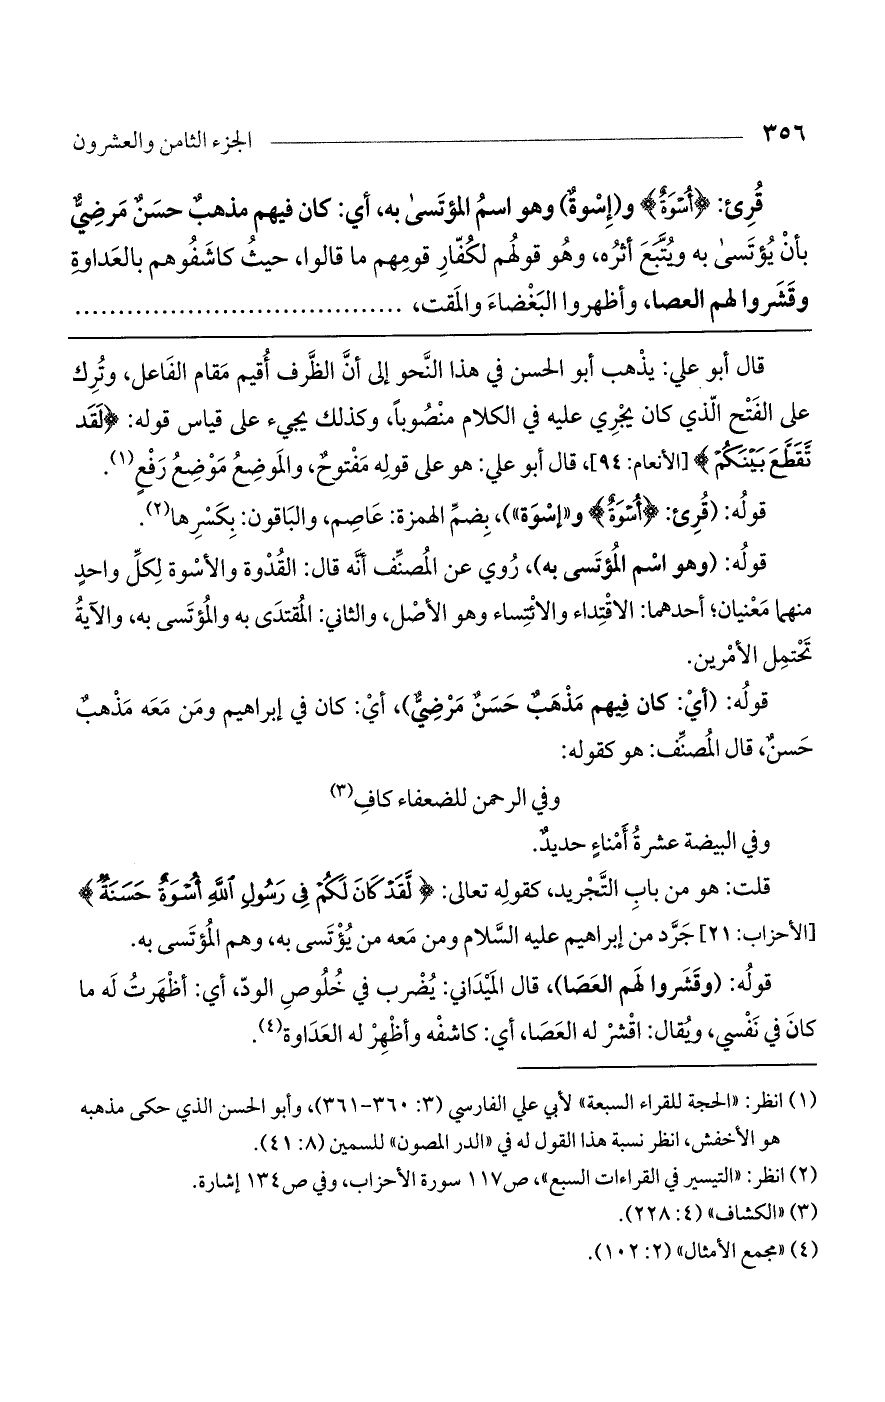 ٣٥٦ الجزء الثامن والعشرون
قُرِئ: ﴿أُسْوَةٌ﴾ و(إِسْوةٌ) وهو اسمُ المؤتَسىٰ به، أي: كان فيهم مذهبٌ حسَنٌ مَرضِيٌّ
بأنْ يُؤتَسىٰ به ويُتَّبَعَ أثرُه، وهُو قولُهم لكُفّارِ قومِهم ما قالوا، حيثُ كاشَفُوهم بالعَداوةِ
وقَشَروا لهم العصا، وأظهروا البَغْضاءَ والمَقت، .....................................
قال أبو علي: يذْهب أبو الحسن في هذا النَّحو إلى أنَّ الظَّرف أُقيم مَقام الفَاعل، وتُرِك
على الفَتْح الّذي كان يجْرِي عليه في الكلام منْصُوباً، وكذلك يجيء على قياس قوله: ﴿لَقَد
تَّقَطَّعَ بَيْنَكُمْ﴾ [الأنعام: ٩٤]، قال أبو علي: هو على قولِه مَفْتوحٌ، والمَوضِعُ مَوْضِعُ رَفْعٍ(١).
قولُه: (قُرِئ: ﴿أُسْوَةٌ﴾ و«إسْوَة»)، بِضمِّ الهمزة: عَاصِم، والبَاقون: بِكَسْرِها(٢).
قولُه: (وهو اسْم المُؤتَسى به)، رُوي عن المُصنِّف أنَّه قال: القُدْوة والأسْوة لِكلِّ واحدٍ
منهما مَعْنيان؛ أحدهما: الاقْتِداء والائْتِساء وهو الأصْل، والثاني: المُقتدَى به والمُؤتَسى به، والآيةُ
تَحْتمِل الأمْرين.
قولُه: (أيْ: كان فِيهم مَذْهَبٌ حَسَنٌ مَرْضِيٌّ)، أيْ: كان في إبراهيم ومَن مَعَه مَذْهبٌ
حَسنٌ، قال المُصنِّف: هو كقوله:
وفي الرحمن للضعفاء كافِ(٣)
وفي البيضة عشرةُ أَمْناءٍ حديدٌ.
قلت: هو من بابِ التَّجْريد، كقولِه تعالى: ﴿لَّقَدْ كَانَ لَكُمْ فِى رَسُولِ ٱللَّهِ أُسْوَةٌ حَسَنَةٌ﴾
[الأحزاب: ٢١] جَرَّد من إبراهيم عليه السَّلام ومن مَعه من يُؤْتَسى به، وهم المُؤتَسى به.
قولُه: (وقَشَروا لهم العَصَا)، قال المَيْدَاني: يُضْرب في خُلُوصِ الودّ، أي: أظْهَرتُ لَه ما
كانَ في نَفْسي، ويُقال: اقْشرْ له العَصَا، أي: كاشفْه وأظْهِرْ له العَدَاوة(٤).
(١) انظر: «الحجة للقراء السبعة» لأبي علي الفارسي (٣: ٣٦٠-٣٦١)، وأبو الحسن الذي حكى مذهبه
هو الأخفش، انظر نسبة هذا القول له في «الدر المصون» للسمين (٨: ٤١).
(٢) انظر: «التيسير في القراءات السبع»، ص١١٧ سورة الأحزاب، وفي ص١٣٤ إشارة.
(٣) «الكشاف» (٤: ٢٢٨).
(٤) «مجمع الأمثال» (٢: ١٠٢).